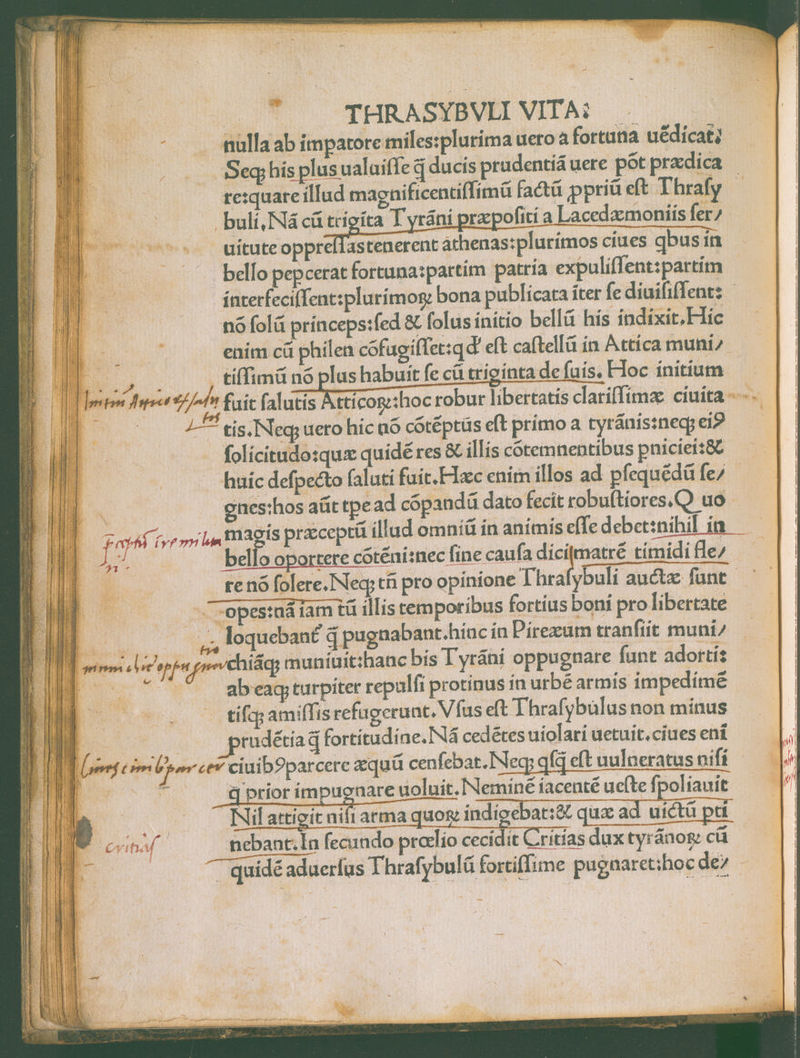 THRASYBVLI VITA:
nulla ab impatore miles:plurima uero a fortuna uẽdicat;
Seq; his plus ualuisse q̃ ducis prudentiã uere põt prædica
re:quare illud magnificentissimũ factũ ꝓpriũ est Thrasy
buli. Nã cũ trigĩta Tyrãni præpositi a Lacedæmoniis ser/
uitute oppressas tenerent athenas:plurimos ciues qbus in
bello pepcerat fortuna:partim patria expulissent:partim
interfecissent:plurimoꝝ bona publicata iter se diuisissent:
nõ solũ princeps:sed & solus initio bellũ his indixit. Hic
enim cũ philen cõfugisset:qd' est castellũ in Attica muni/
tissimũ nõ plus habuit se cũ triginta de suis. Hoc initium
fuit salutis Atticoꝝ:hoc robur libertatis clarissimæ ciuita
tis. Neq; uero hic nõ cõtẽptus est primo a tyrãnis:neq; eiꝰ
solicitudo:quæ quidẽ res & illis cõtemnentibus pniciei:&
huic despecto saluti fuit. Hæc enim illos ad psequẽdũ se/
gnes:hos aũt tpe ad cõpandũ dato fecit robustiores. Quo
magis præceptũ illud omniũ in animis esse debet:nihil in
bello oportere cõtẽni:nec sine causa dici|matrẽ timidi fle/
re nõ solere. Neq; tñ pro opinione Thrasybuli auctæ sunt
opes:nã iam tũ illis temporibus fortius boni pro libertate
loquebant q̃ pugnabant. hinc in Piræeum transiit muni/
chiãq; muniuit:hanc bis Tyrãni oppugnare sunt adorti:
ab eaq; turpiter repulsi protinus in urbẽ armis impedimẽ
tisq; amissis refugerunt. Vsus est Thrasybulus non minus
prudẽtia q̃ fortitudine. Nã cedẽtes uiolari uetuit. ciues enĩ
ciuibꝰ parcere æquũ censebat. Neq; qsq̃ est uulneratus nisi
q prior impugnare uoluit. Neminẽ iacentẽ ueste spoliauit
Nil attigit nisi arma quoꝝ indigebat:& quæ ad uictũ pti
nebant. In secundo prœlio cecidit Critias dux tyrãnoꝝ cũ
critias
quidẽ aduersus Thrasybulũ fortissime pugnaret:hoc de/